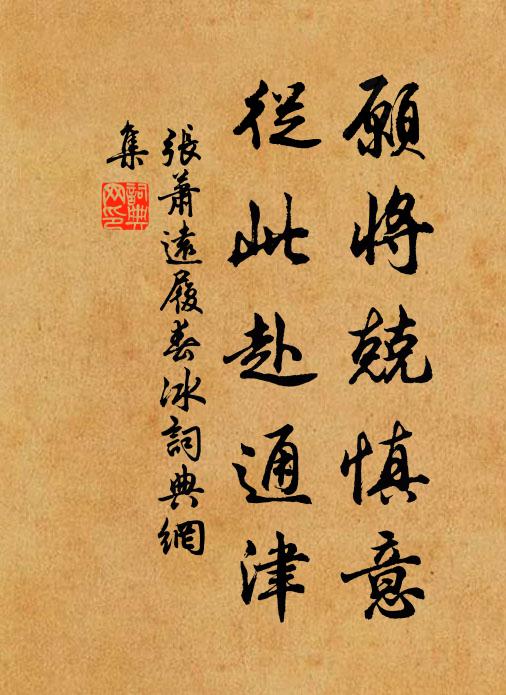 願將兢慎意
從此赴通津
張蕭遠履春冰詞典網
集
詞典
网印